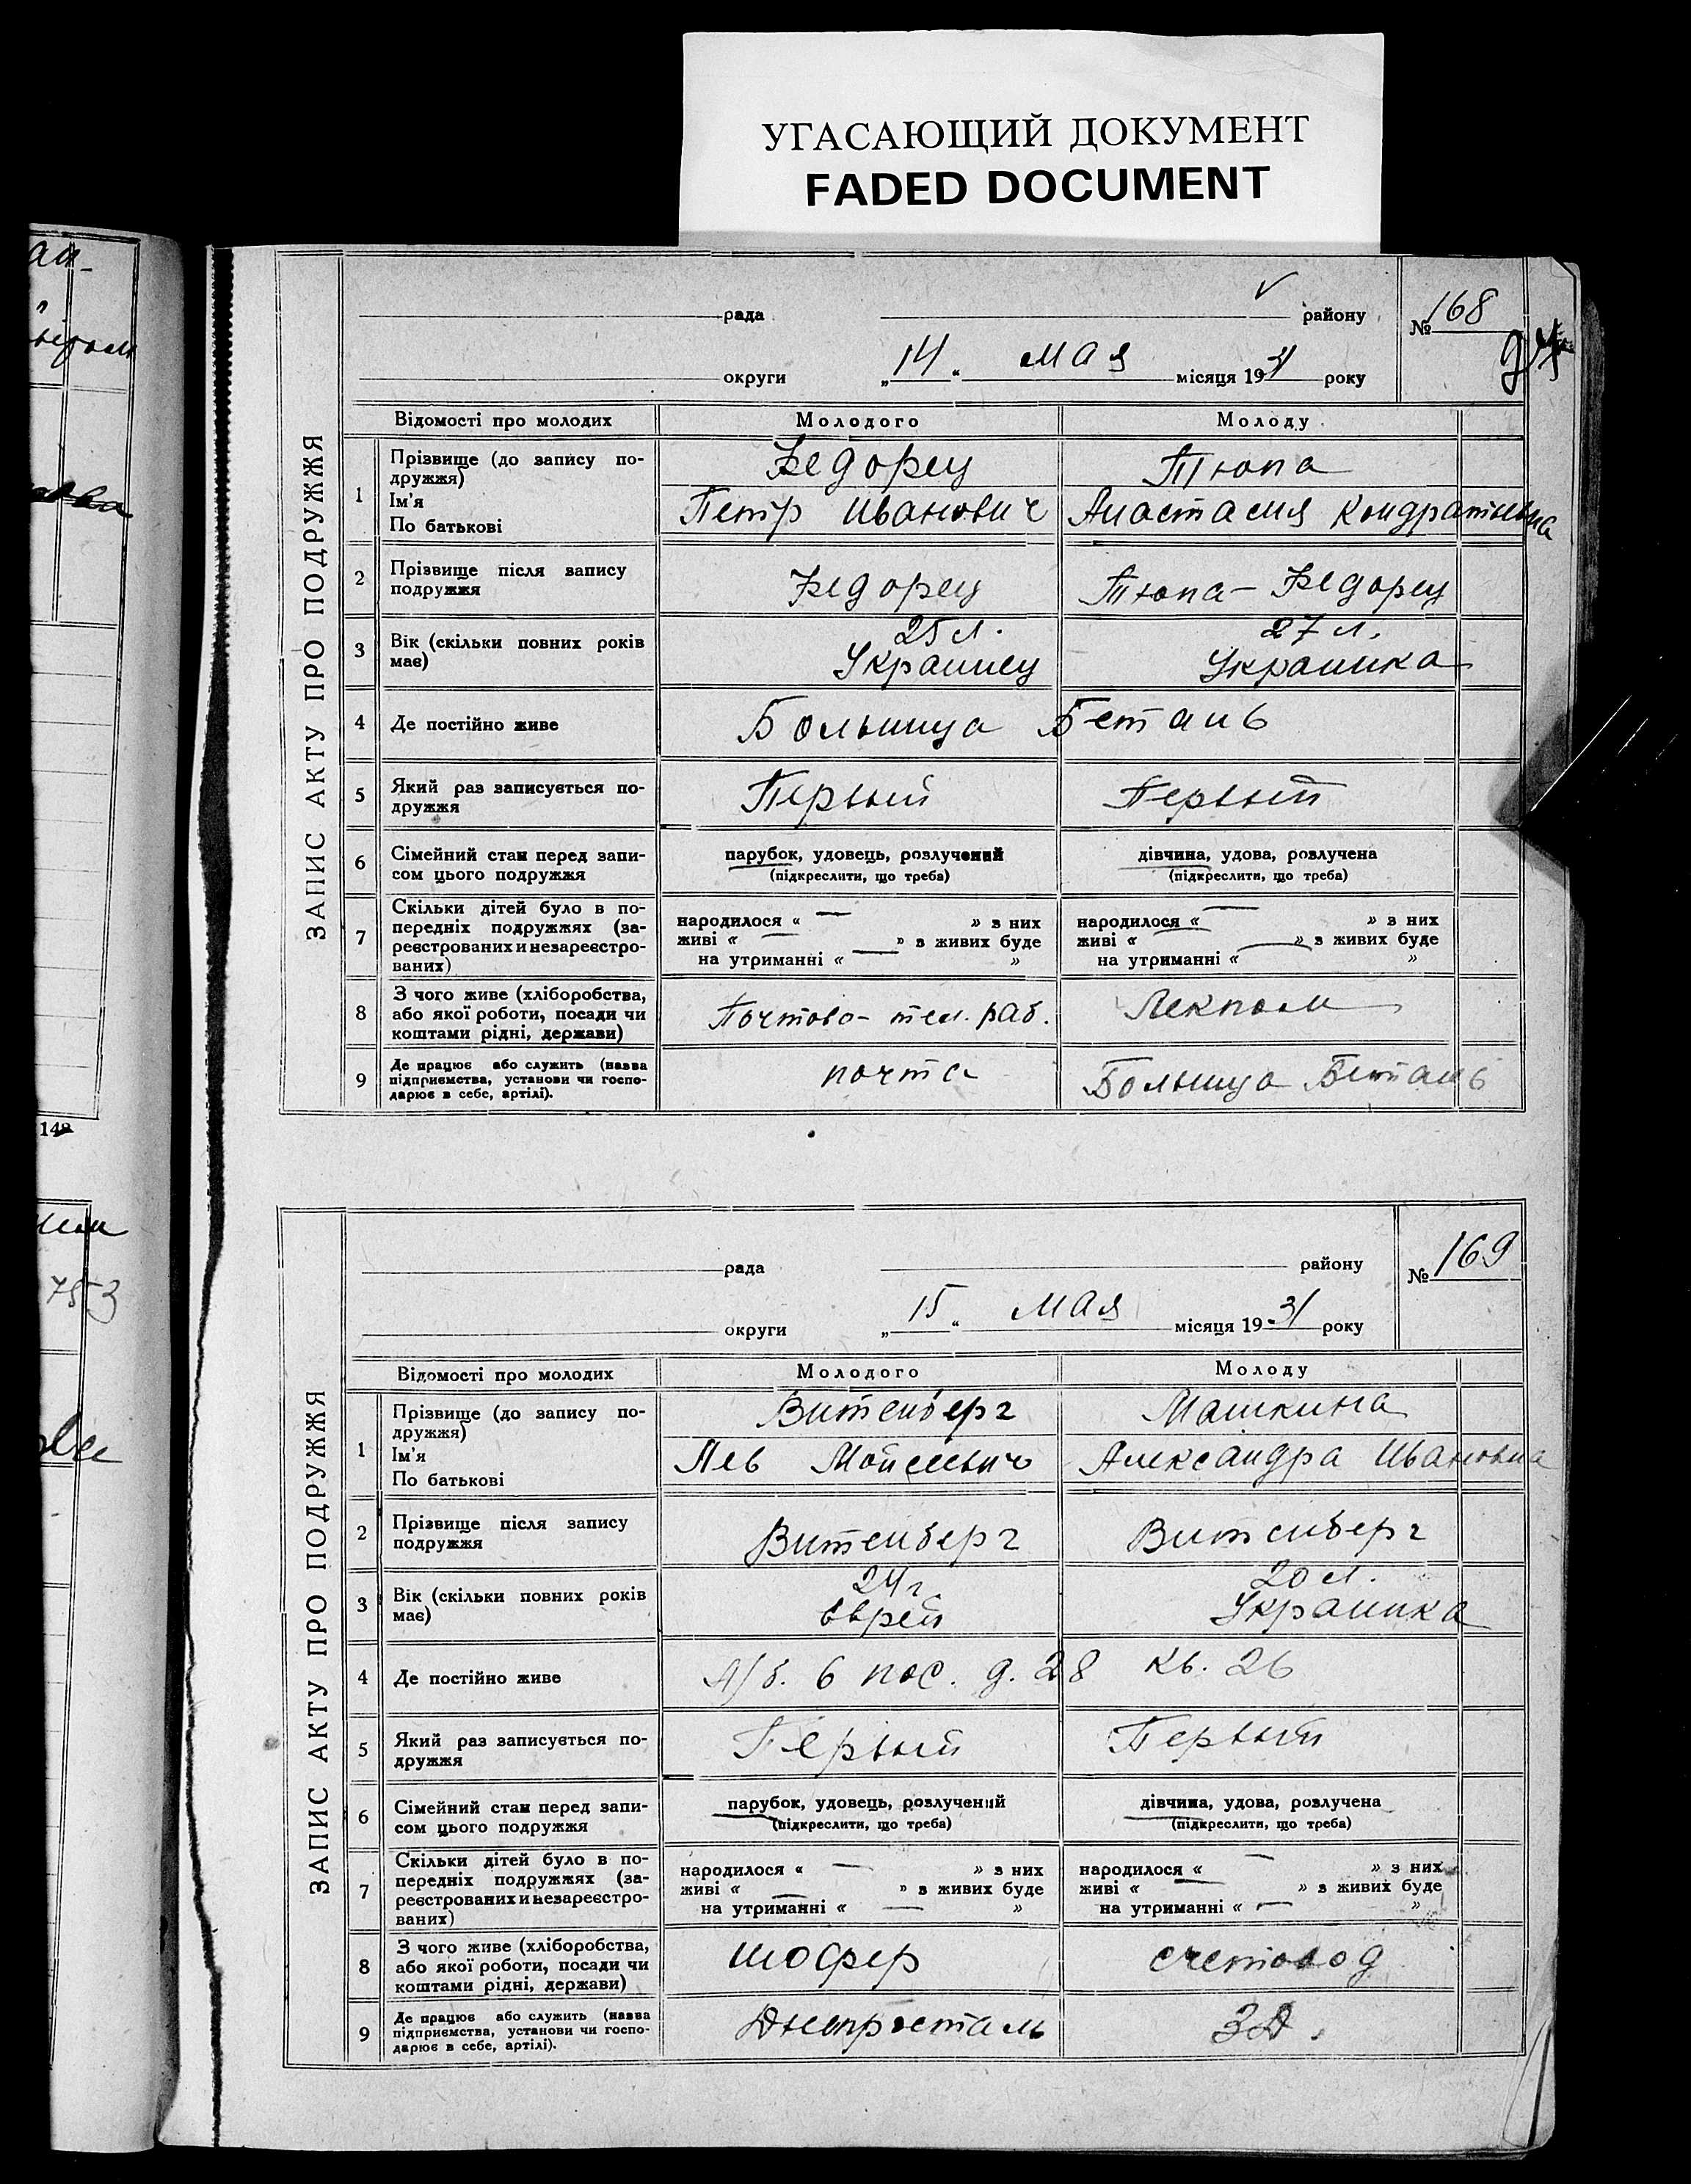 УГАСАЮЩИЙ ДОКУМЕНТ
FADED DOCUMENT
ЗАПИС АКТУ ПРО ПОДРУЖЖЯ
рада району № 168
округи „14“ мая місяця 1931 року
Відомості про молодих Молодого Молоду
1 Прізвище (до запису по- Федорец Тюпа
дружжя)
Ім'я Петр Иванович Анастасия Кондратьевна
По батькові
2 Прізвище після запису Федорец Тюпа-Федорец
подружжя
3 Вік (скільки повних років 25 л. 27 л.
має) Украинец Украинка
4 Де постійно живе Больница Бетань
5 Який раз записується по- Первый Первый
дружжя
6 Сімейний стан перед запи- парубок, удовець, розлучений дівчина, удова, розлучена
сом цього подружжя (підкреслити, що треба) (підкреслити, що треба)
7 Скільки дітей було в по-
передніх подружжях (за- народилося « — » з них народилося « — » з них
реєстрованих и незареєстро- живі « — » з живих буде живі « — » з живих буде
ваних) на утриманні « — » на утриманні « — »
8 З чого живе (хліборобства,
або якої роботи, посади чи Почтово-тел. раб. Лекпом
коштами рідні, держави)
9 Де працює або служить (назва почта Больница Бетань
підприємства, установи чи госпо-
дарює в себе, артілі).
ЗАПИС АКТУ ПРО ПОДРУЖЖЯ
рада району № 169
округи „15“ мая місяця 1931 року
Відомості про молодих Молодого Молоду
1 Прізвище (до запису по- Витенберг Машкина
дружжя)
Ім'я Лев Мойсеевич Александра Ивановна
По батькові
2 Прізвище після запису Витенберг Витенберг
подружжя
3 Вік (скільки повних років 24 г. 20 л.
має) еврей Украинка
4 Де постійно живе 6 пос. д. 28 кв. 26
5 Який раз записується по- Первый Первый
дружжя
6 Сімейний стан перед запи- парубок, удовець, розлучений дівчина, удова, розлучена
сом цього подружжя (підкреслити, що треба) (підкреслити, що треба)
7 Скільки дітей було в по-
передніх подружжях (за- народилося « — » з них народилося « — » з них
реєстрованих и незареєстро- живі « — » з живих буде живі « — » з живих буде
ваних) на утриманні « — » на утриманні « — »
8 З чого живе (хліборобства,
або якої роботи, посади чи шофер счетовод
коштами рідні, держави)
9 Де працює або служить (назва Днепросталь ЗД.
підприємства, установи чи госпо-
дарює в себе, артілі).